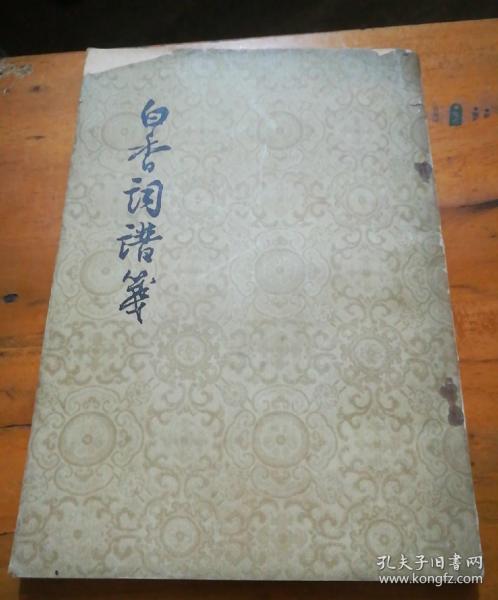 白香词谱箋
孔夫子旧书网
www.kongfz.com